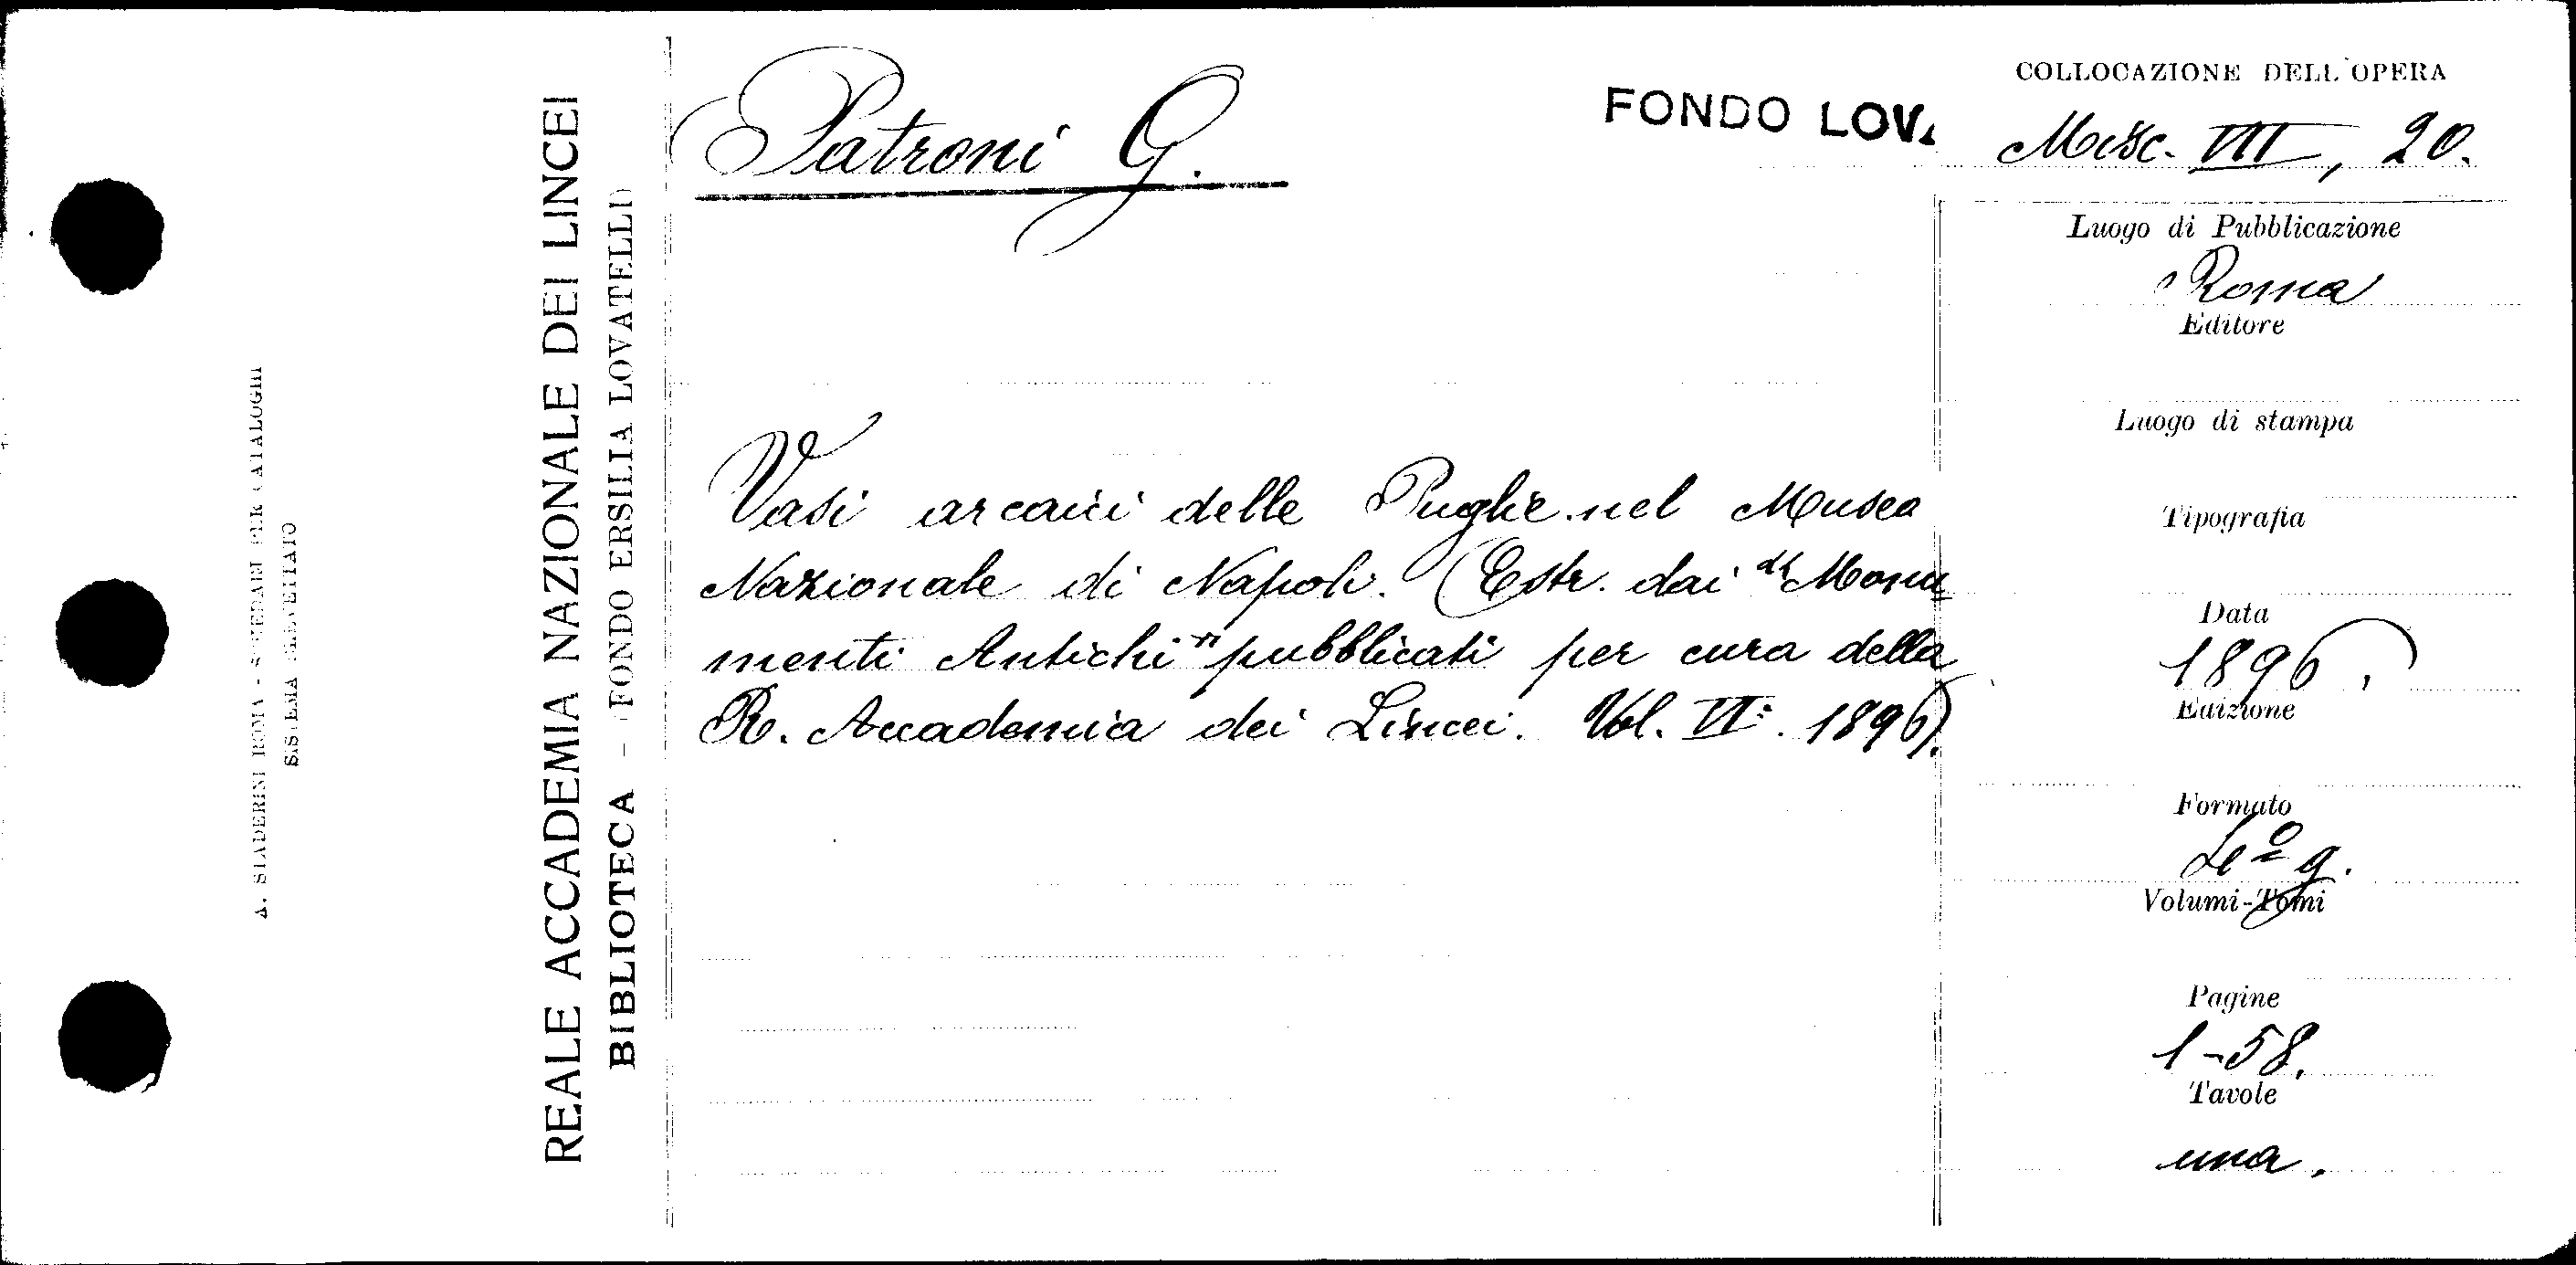 A. STADERINI ROMA - SCHEDARI PER CATALOGHI
SISTEMA BREVETTATO
REALE ACCADEMIA NAZIONALE DEI LINCEI
BIBLIOTECA - (FONDO ERSILIA LOVATELLI)
Patroni G.
FONDO LOV.
Vasi arcaici delle Puglie nel Museo
Nazionale di Napoli. (Estr. dai "Monu=
menti Antichi" pubblicati per cura della
R. Accademia dei Lincei. Vol. VI: 1896).
COLLOCAZIONE DELL'OPERA
Misc. VII, 20.
Luogo di Pubblicazione
Roma
Editore
Luogo di stampa
Tipografia
Data
1896.
Edizione
Formato
4º g.
Volumi-Tomi
Pagine
1-58.
Tavole
una.